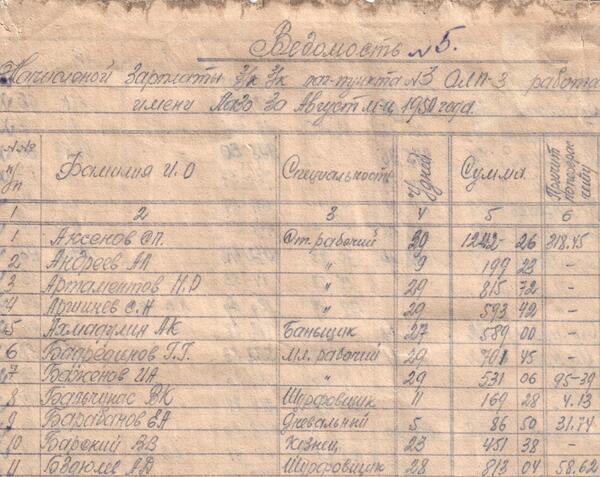 Ведомость №5.
Начисленой зарплаты з/к з/к лаг-пункта №3 ОЛП-3 работа
имени Лазо за Август м-ц 1950 года.
№№ п/п Фамилия И.О Специальность Ч/дней Сумма
1 2 3 4 5 6
1 Аксенов С.П. Ст. рабочий 30 1242-26 318.45
2 Андреев А.П " 9 199 23 -
3 Артаментов Н.Р " 29 815 72 -
4 Аршинев С.Н " 29 593 42 -
5 Ахмадулин А.К Банщик 27 589 00 -
6 Г.Г. Мл. рабочий 29 701 45 -
7 Баженов И.А " 29 531 06 95-39
8 Бальчинас Шурфовщик 11 169 28 4.13
9 Барабанов Е.А Дневальный 5 86 50 31.74
10 Барский В.З Кузнец 23 451 38 -
11 Шурфовщик 28 813 04 58.62